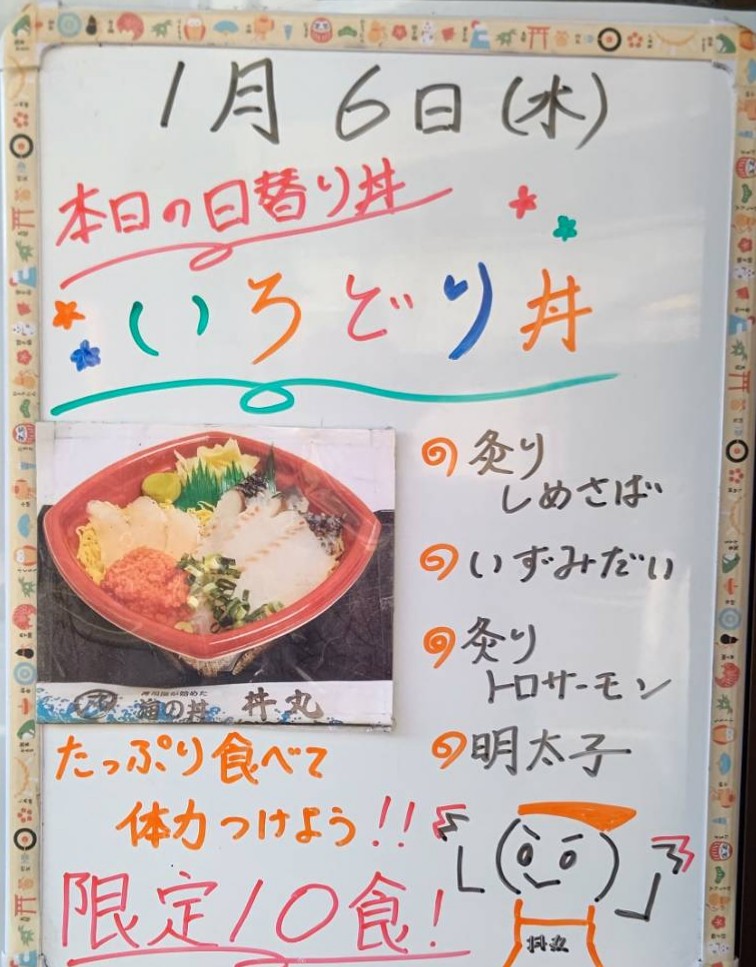 1月6日(水)
本日の日替り丼
いろどり丼
炙り
しめさば
いずみだい
炙り
トロサーモン
明太子
海の丼 丼丸
たっぷり食べて
体力つけよう!!
限定10食!
丼丸